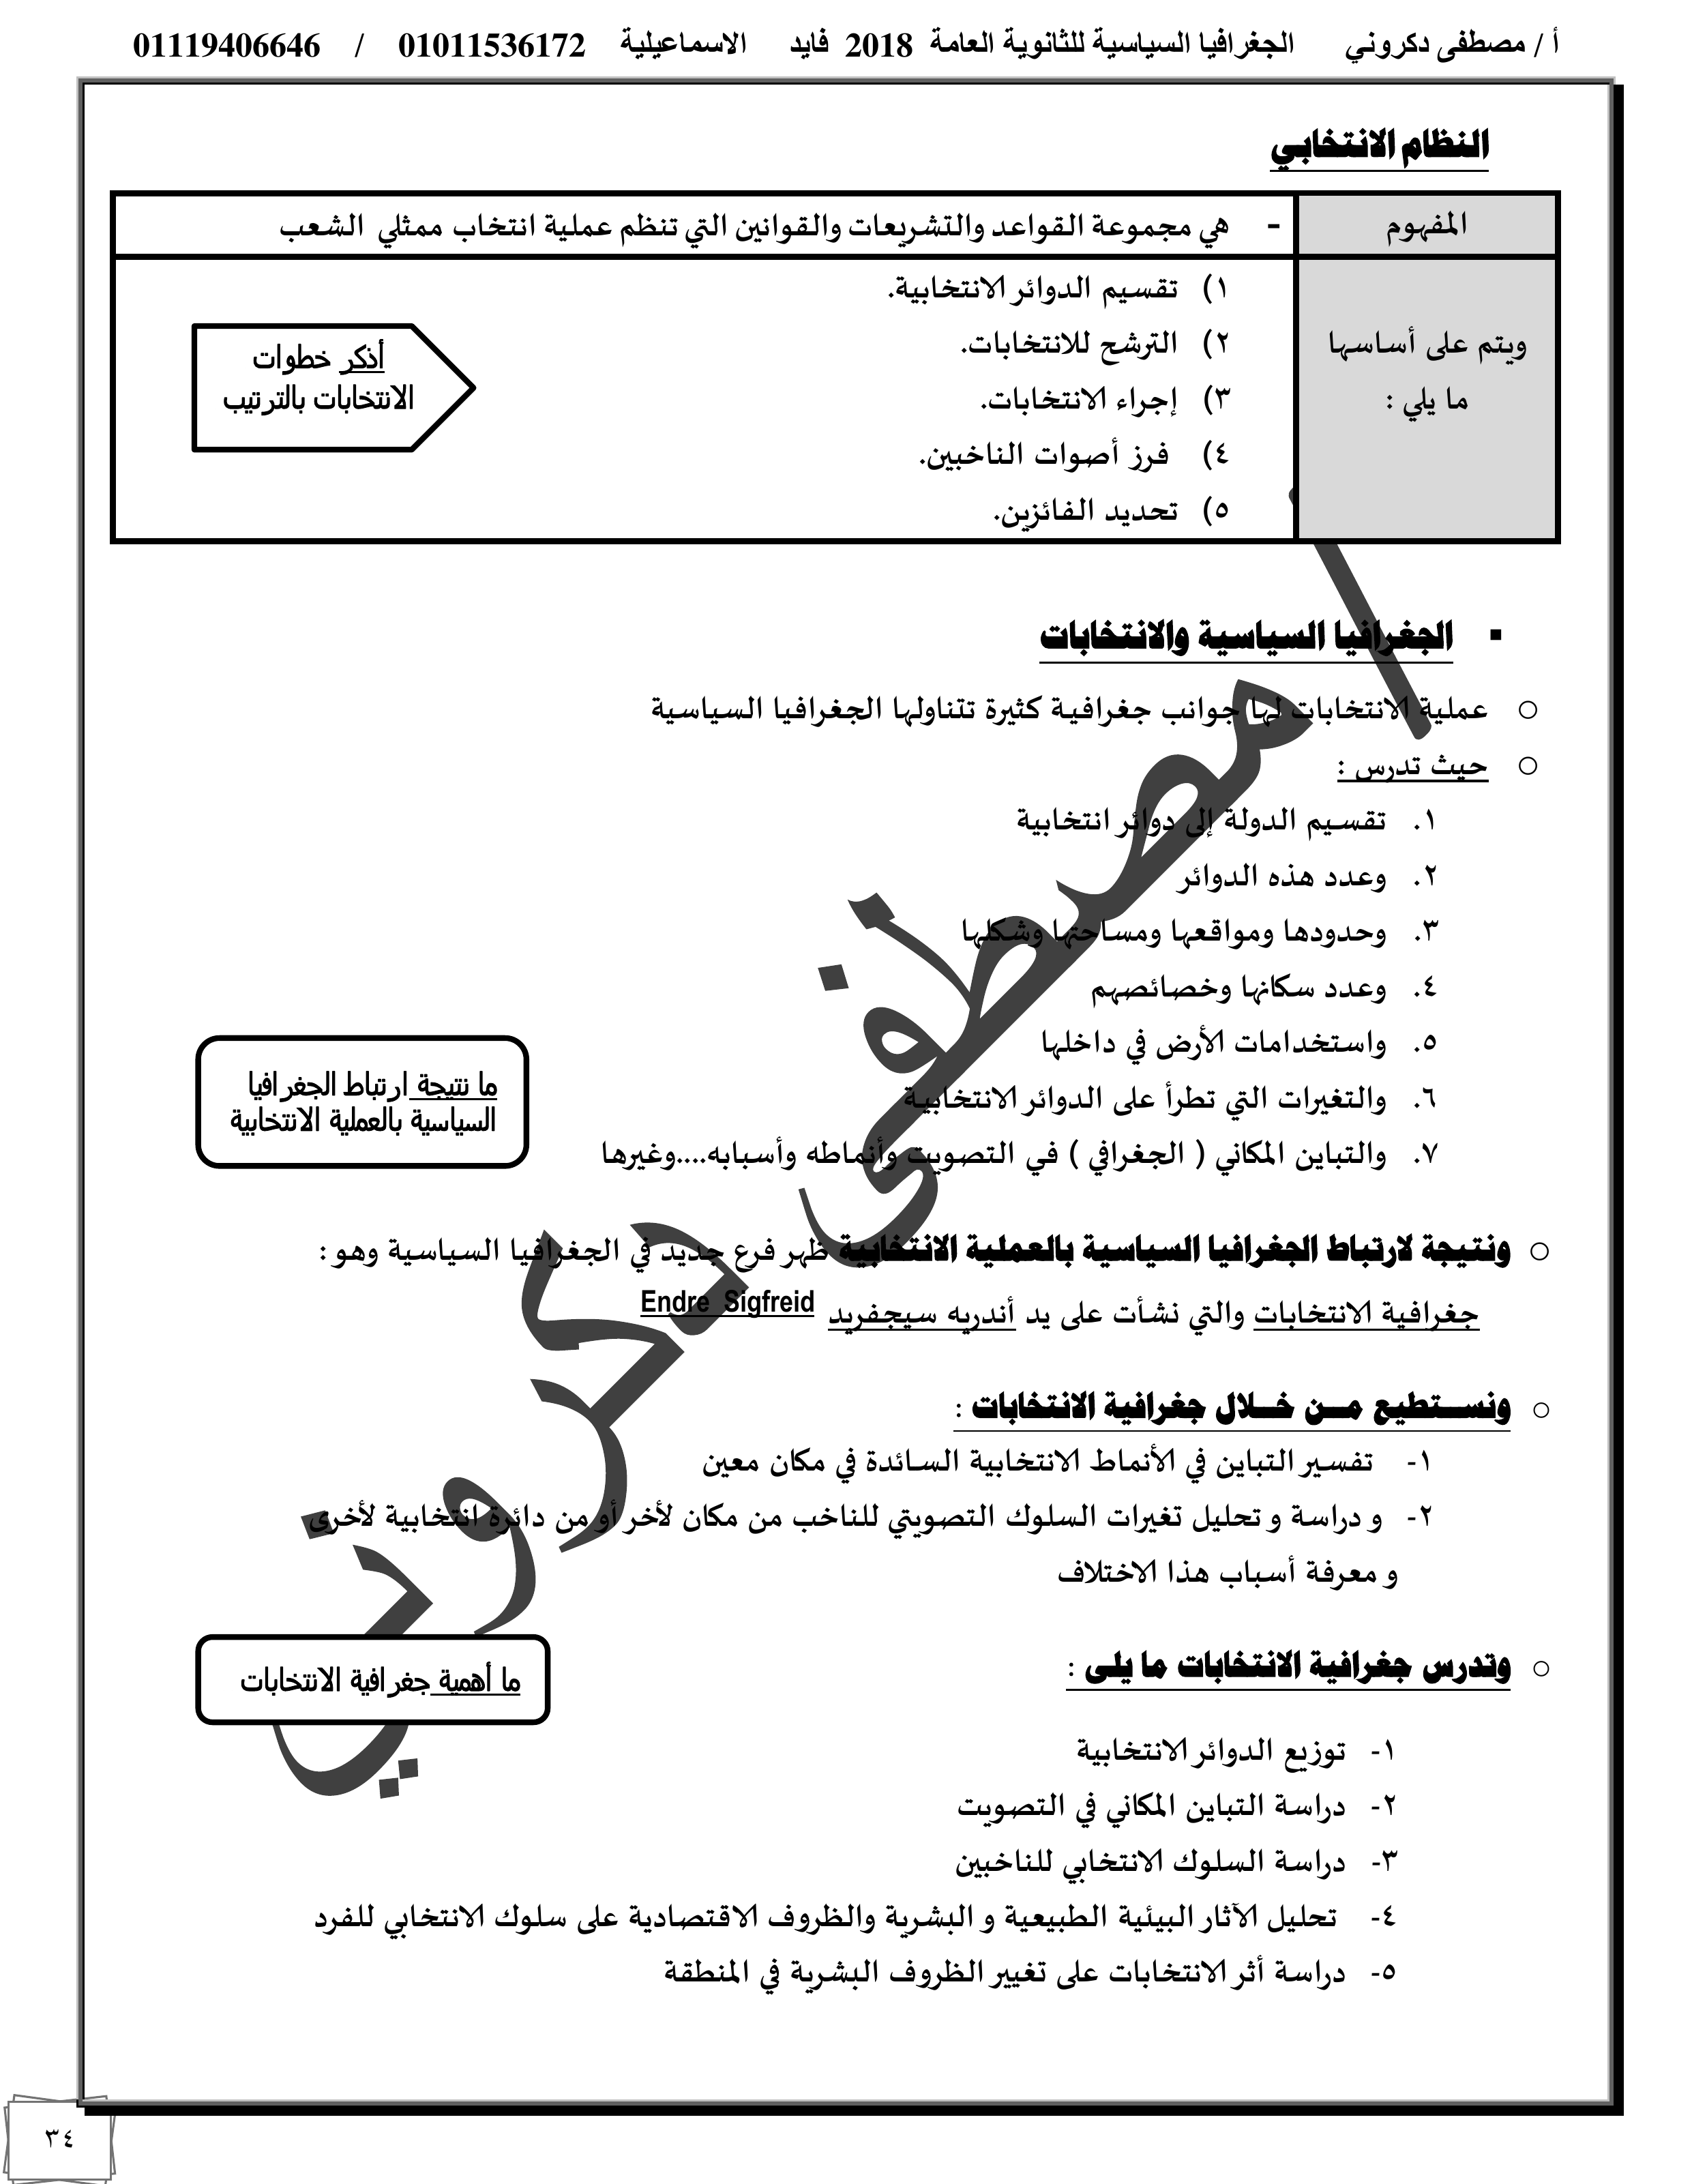 أ / مصطفى دكروني الجغرافيا السياسية للثانوية العامة 2018 فايد الاسماعيلية 01011536172 / 01119406646
النظام الانتخابي
المفهوم - هي مجموعة القواعد والتشريعات والقوانين التي تنظم عملية انتخاب ممثلي الشعب
ويتم على أساسها
ما يلي :
١) تقسيم الدوائر الانتخابية.
٢) الترشح للانتخابات.
٣) إجراء الانتخابات.
٤) فرز أصوات الناخبين.
٥) تحديد الفائزين.
أذكر خطوات
الانتخابات بالترتيب
▪ الجغرافيا السياسية والانتخابات
○ عملية الانتخابات لها جوانب جغرافية كثيرة تتناولها الجغرافيا السياسية
○ حيث تدرس :
١. تقسيم الدولة إلى دوائر انتخابية
٢. وعدد هذه الدوائر
٣. وحدودها ومواقعها ومساحتها وشكلها
٤. وعدد سكانها وخصائصهم
٥. واستخدامات الأرض في داخلها
٦. والتغيرات التي تطرأ على الدوائر الانتخابية
٧. والتباين المكاني ( الجغرافي ) في التصويت وأنماطه وأسبابه....وغيرها
ما نتيجة ارتباط الجغرافيا
السياسية بالعملية الانتخابية
○ ونتيجة لارتباط الجغرافيا السياسية بالعملية الانتخابية ظهر فرع جديد في الجغرافيا السياسية وهو :
جغرافية الانتخابات والتي نشأت على يد أندريه سيجفريد Endre Sigfreid
○ ونستطيع من خلال جغرافية الانتخابات :
١- تفسير التباين في الأنماط الانتخابية السائدة في مكان معين
٢- و دراسة و تحليل تغيرات السلوك التصويتي للناخب من مكان لأخر أو من دائرة انتخابية لأخرى
و معرفة أسباب هذا الاختلاف
○ وتدرس جغرافية الانتخابات ما يلى :
ما أهمية جغرافية الانتخابات
١- توزيع الدوائر الانتخابية
٢- دراسة التباين المكاني في التصويت
٣- دراسة السلوك الانتخابي للناخبين
٤- تحليل الآثار البيئية الطبيعية و البشرية والظروف الاقتصادية على سلوك الانتخابي للفرد
٥- دراسة أثر الانتخابات على تغيير الظروف البشرية في المنطقة
أ / مصطفى دكروني
٣٤